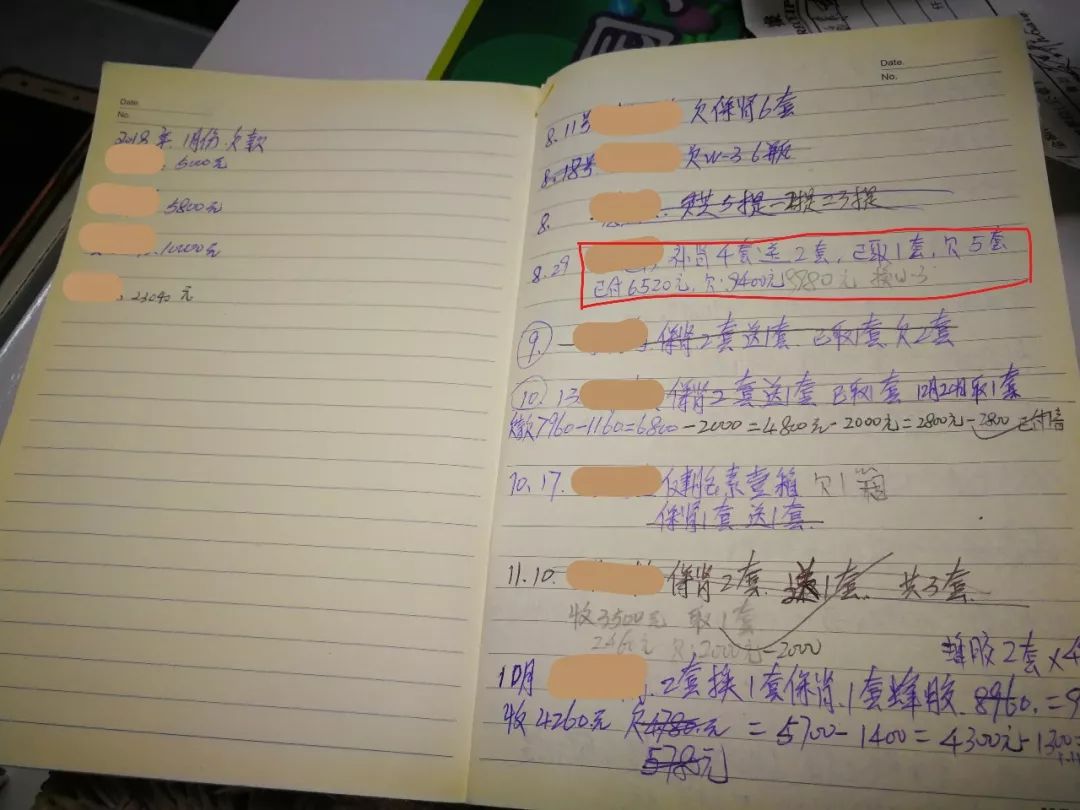 Date.
No.
2018年 1月份 欠款
5000元
5800元
10000元
23040元
Date.
No.
8.11号 欠保肾6套
8.18号 欠W-3 6瓶
8.
8.29 补肾4套送2套,已取1套,欠5套
已付6520元,欠:9400元 9980元 换W-3
9. 保肾2套送1套 已取1套欠2套
10.13 保肾2套送1套 已取1套 12月20日取1套
7960-1160=6800-2000=4800元-2000元=2800元-2800 已付清
10.17. 素壹箱 欠1箱
保肾1套 送1套
11.10. 保肾2套 送1套 共3套
收3500元 取1套
2460元 欠:2000元-2000
胶2套×4
10月 2套换1套保肾.1套蜂胶 8960.=9
收4260元 欠4780元 = 5700-1400=4300元-1300=
5780元